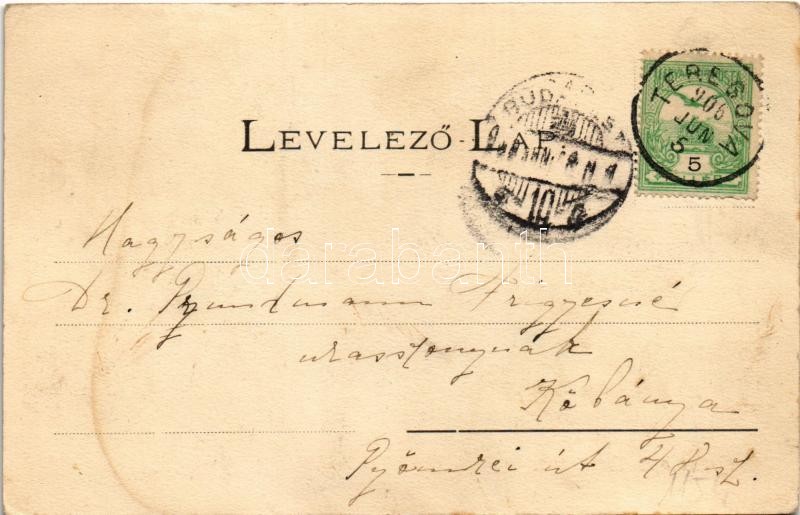 LEVELEZŐ-LAP
TERESOVA
906
JUN
5
5
BUDAPEST
Nagyságos
darabanth
Dr. Grundmann Frigyesné
urasszonynak
Kőbánya
Gyömrői út 48 sz.